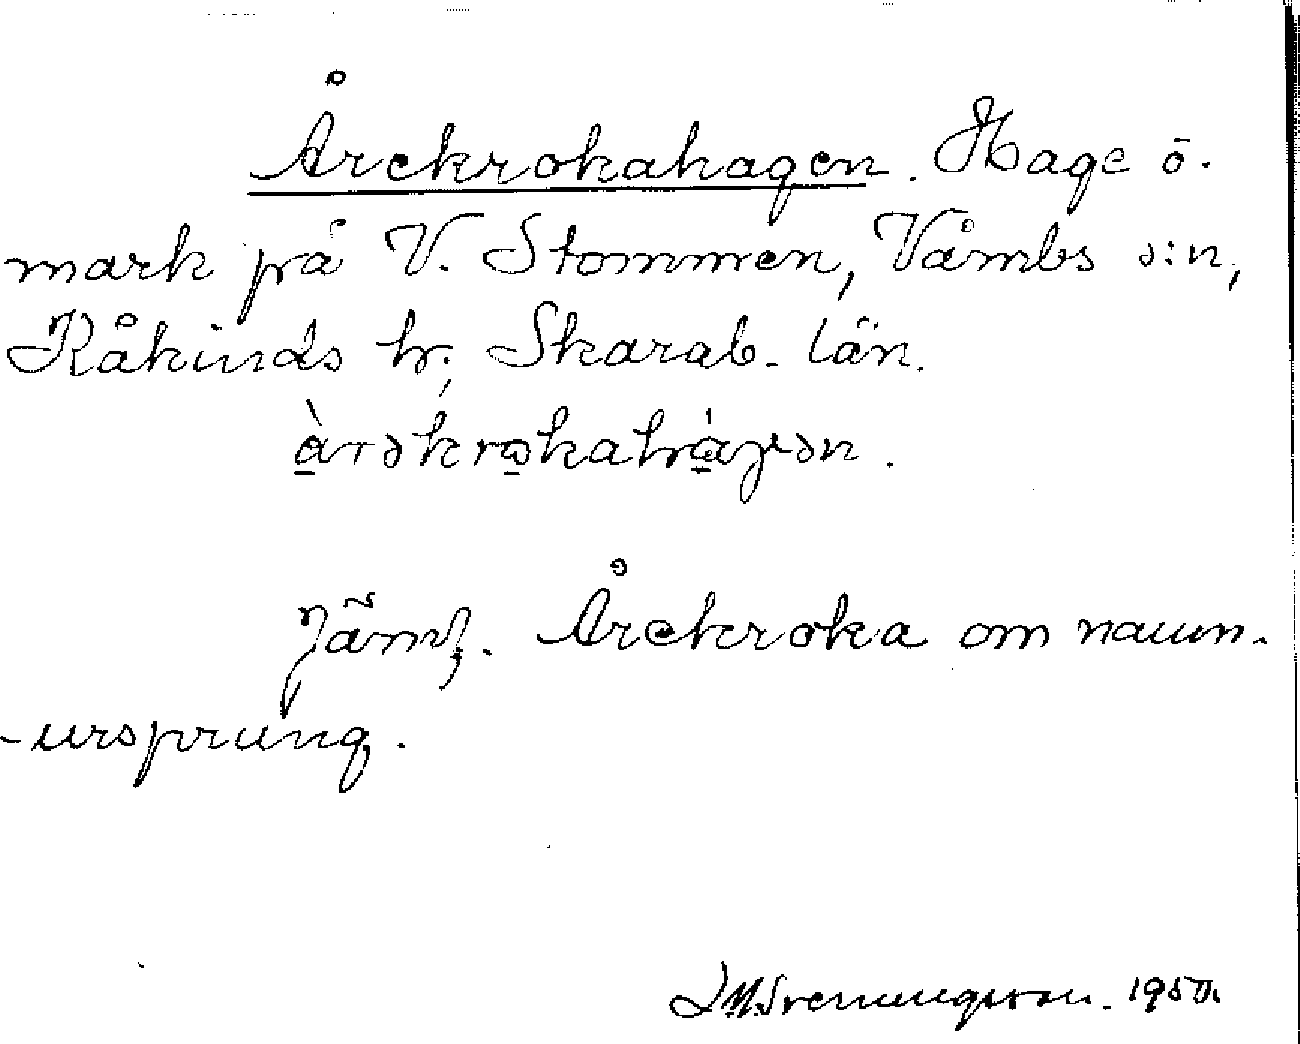 Årekrokahagen. Hage ö.
mark på V. Stommen, Våmbs s:n,
Kåkinds hr, Skarab. län.
àrəkrokahàgən.
Jämf. Årekroka om namn-
-ursprung.
Svenungsson. 1950.